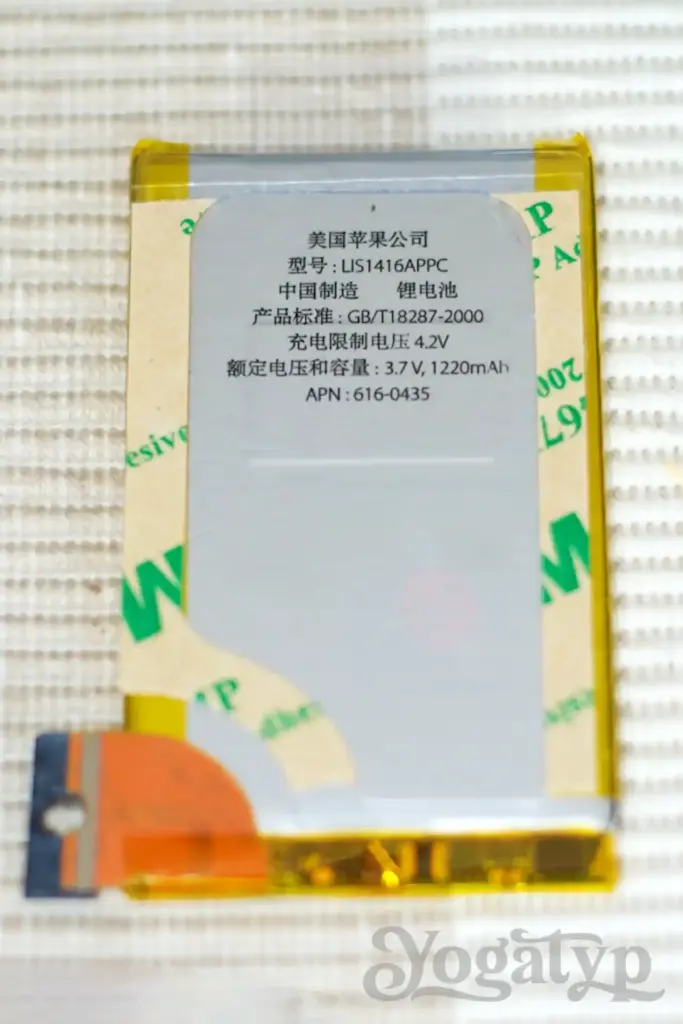 美国苹果公司
型号 : LIS1416APPC
中国制造 锂电池
产品标准 : GB/T18287-2000
充电限制电压 4.2V
额定电压和容量 : 3.7 V, 1220mAh
APN : 616-0435
Yogatyp